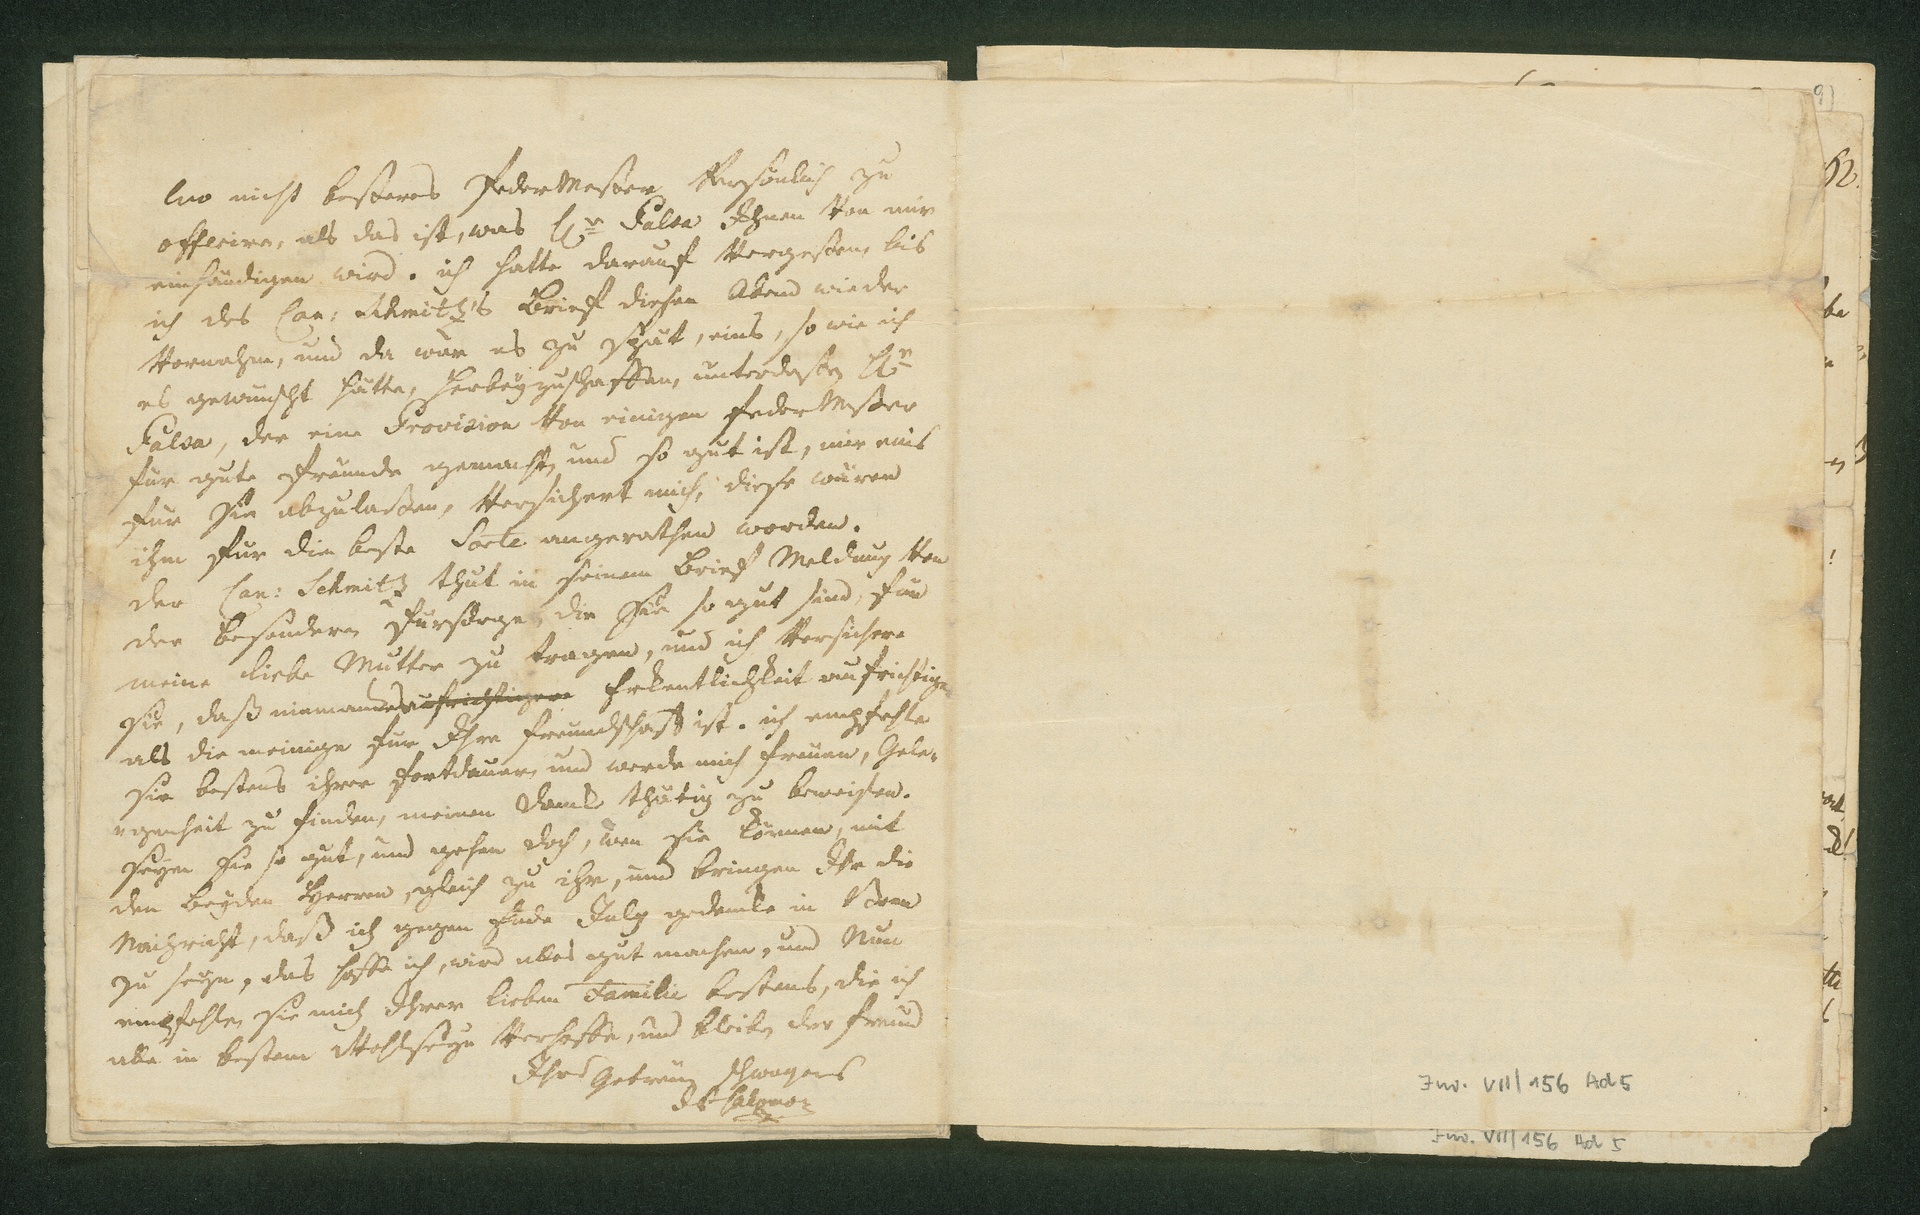 wo nicht besseres FederMesser Persönlich zu
offeriren, als das ist, was Hr Salva Ihnen von mir
einhändigen wird. ich hatte darauf Vergessen, bis
ich des Can: Schmitz's Brief diesen Abend wieder
Vornahm, und da war es zu spät, eins, so wie ich
es gewünscht hätte, herbeyzuschaffen, unterdessen Hr
Salva, der eine Provision von einigen FederMesser
für gute Freunde gemacht, und so gut ist, mir eins
für Sie abzulassen, Versichert mich, diese wären
ihm für die beste Sorte angerathen worden.
der Can: Schmitz thut in seinem Brief Meldung Von
der Besondern Fürsorge, die Sie so gut sind, für
meine liebe Mutter zu tragen, und ich Versichere
Sie, daß niemandes aufrichtigere Erkentlichkeit aufrichtiger
als die meinige für Ihre Freundschaft ist. ich empfehle
Sie bestens ihrer Fortdauer, und werde mich freuen, Gele-
genheit zu finden, meinen Dank thätig zu beweisen.
Seyen Sie so gut, und gehen doch, wen Sie können, mit
den Beyden Herren, gleich zu ihr, und bringen Ihr die
Nachricht, daß ich gegen Ende July gedenke in Bonn
zu seyn, das hoffe ich, wird alles gut machen, und Nun
empfehlen Sie mich Ihrer lieben Familie bestens, die ich
alle in bestem Wohlseyn Verhoffe, und bleiben der Freund
Ihres Getreuen Schwagers
JPSalomon
Inv. VII/156 Ad 5
Inv. VII/156 Ad 5